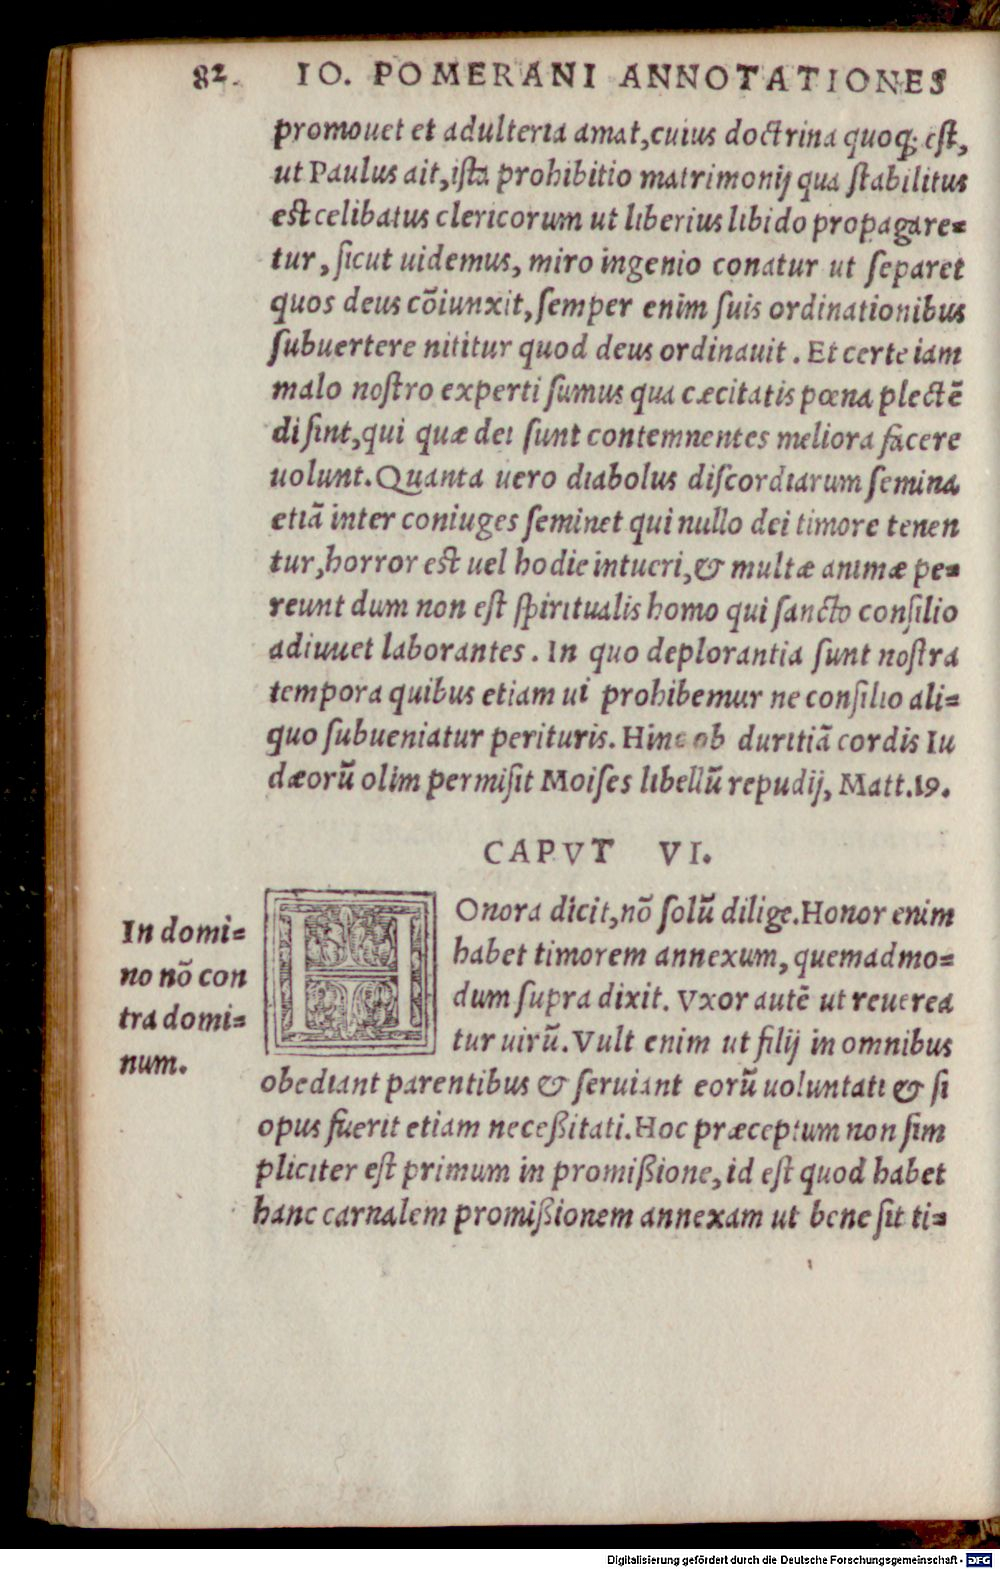 82. IO. POMERANI ANNOTATIONES
promouet et adulteria amat, cuius doctrina quoq; est,
ut Paulus ait, ista prohibitio matrimonij qua stabilitus
est celibatus clericorum ut liberius libido propagare=
tur, sicut uidemus, miro ingenio conatur ut separet
quos deus cōiunxit, semper enim suis ordinationibus
subuertere nititur quod deus ordinauit. Et certe iam
malo nostro experti sumus qua cæcitatis pœna plectē
di sint, qui quæ dei sunt contemnentes meliora facere
uolunt. Quanta uero diabolus discordiarum semina
etiā inter coniuges seminet qui nullo dei timore tenen
tur, horror est uel hodie intueri, & multæ animæ pe=
reunt dum non est spiritualis homo qui sancto consilio
adiuuet laborantes. In quo deplorantia sunt nostra
tempora quibus etiam ui prohibemur ne consilio ali=
quo subueniatur perituris. Hinc ob duritiā cordis Iu
dæorū olim permisit Moises libellū repudij, Matt.19.
CAPVT VI.
In domi=
no nō con
tra domi=
num.
HOnora dicit, nō solū dilige. Honor enim
habet timorem annexum, quemadmo=
dum supra dixit. Vxor autē ut reuerea
tur uirū. Vult enim ut filij in omnibus
obediant parentibus & seruiant eorū uoluntati & si
opus fuerit etiam neceßitati. Hoc præceptum non sim
pliciter est primum in promißione, id est quod habet
hanc carnalem promißionem annexam ut bene sit ti=
Digitalisierung gefördert durch die Deutsche Forschungsgemeinschaft - DFG